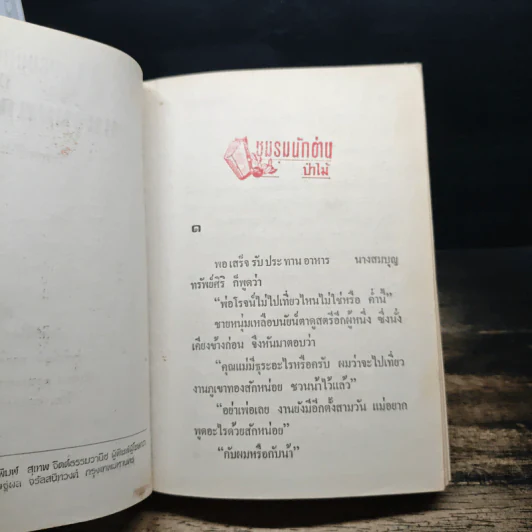 ชมรมนักอ่าน
ป่าไม้
๑
พอเสร็จรับประทานอาหาร นางสมบุญ
ทรัพย์ศิริ ก็พูดว่า
“พ่อโรจน์ไม่ไปเที่ยวไหนไม่ใช่หรือ ค่ำนี้”
ชายหนุ่มเหลือบนัยน์ตาดูสตรีอีกผู้หนึ่ง ซึ่งนั่ง
เคียงข้างก่อน จึงหันมาตอบว่า
“คุณแม่มีธุระอะไรหรือครับ ผมว่าจะไปเที่ยว
งานภูเขาทองสักหน่อย ชวนน้าไว้แล้ว”
“อย่าเพ่อเลย งานยังมีอีกตั้งสามวัน แม่อยาก
พูดอะไรด้วยสักหน่อย”
“กับผมหรือกับน้า”
พิมพ์ สุภาพ
จรัลสนิทวงศ์